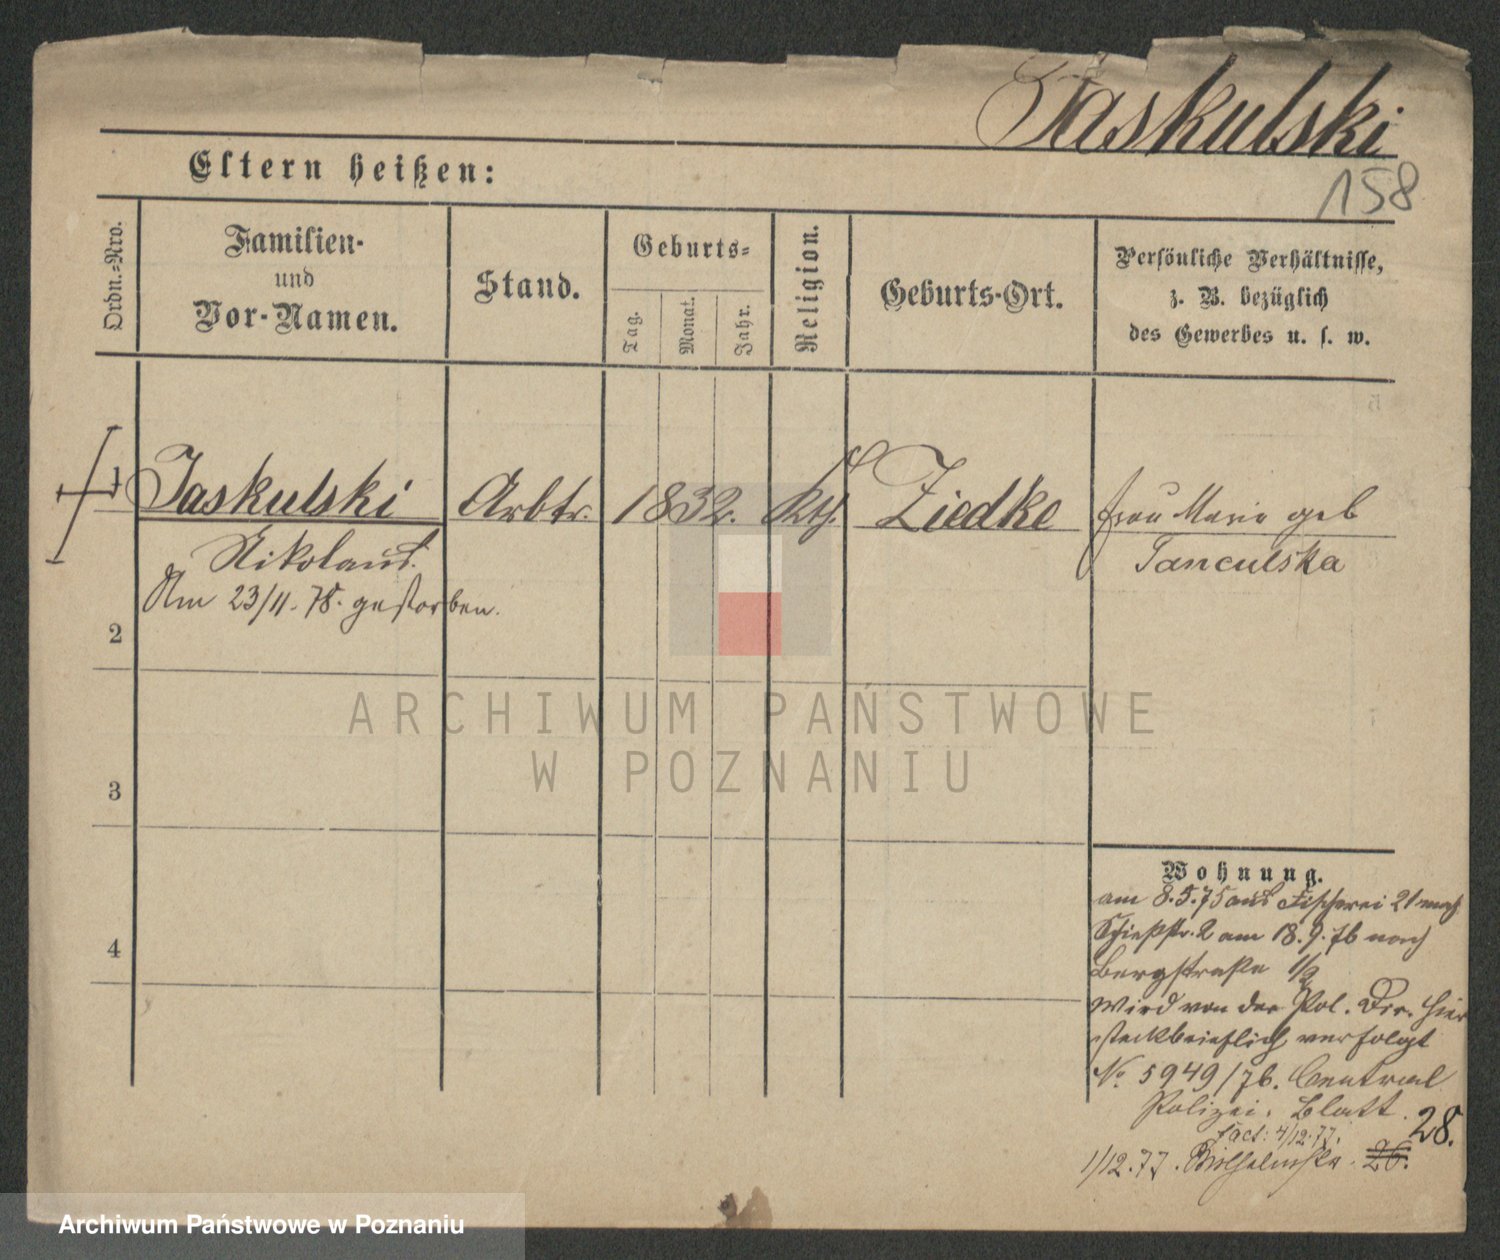 Jaskulski
158
Eltern heißen:
Ordn.-Nro.
Familien-
und
Vor-Namen.
Stand.
Geburts-
Tag.
Monat.
Jahr.
Religion.
Geburts-Ort.
Persönliche Verhältnisse,
z. B. bezüglich
des Gewerbes u. s. w.
1 Jaskulski Arbtr. 1832. Kth. Ziedke frau Marie geb
Nikolaus.
Am 23/11. 78. gestorben.
2
3
4
Wohnung.
am 8.5.75 aus Fischerei 21 nach
Schießstr. 2 am 18.9.76 nach
Bergstraße
Wird von der Pol. Dir. hier
steckbrieflich verfolgt
No 5949/76. Central
Polizei. Blatt.
4/12.77.
28.
1/12.77. 26.
ARCHIWUM PAŃSTWOWE
W POZNANIU
Archiwum Państwowe w Poznaniu